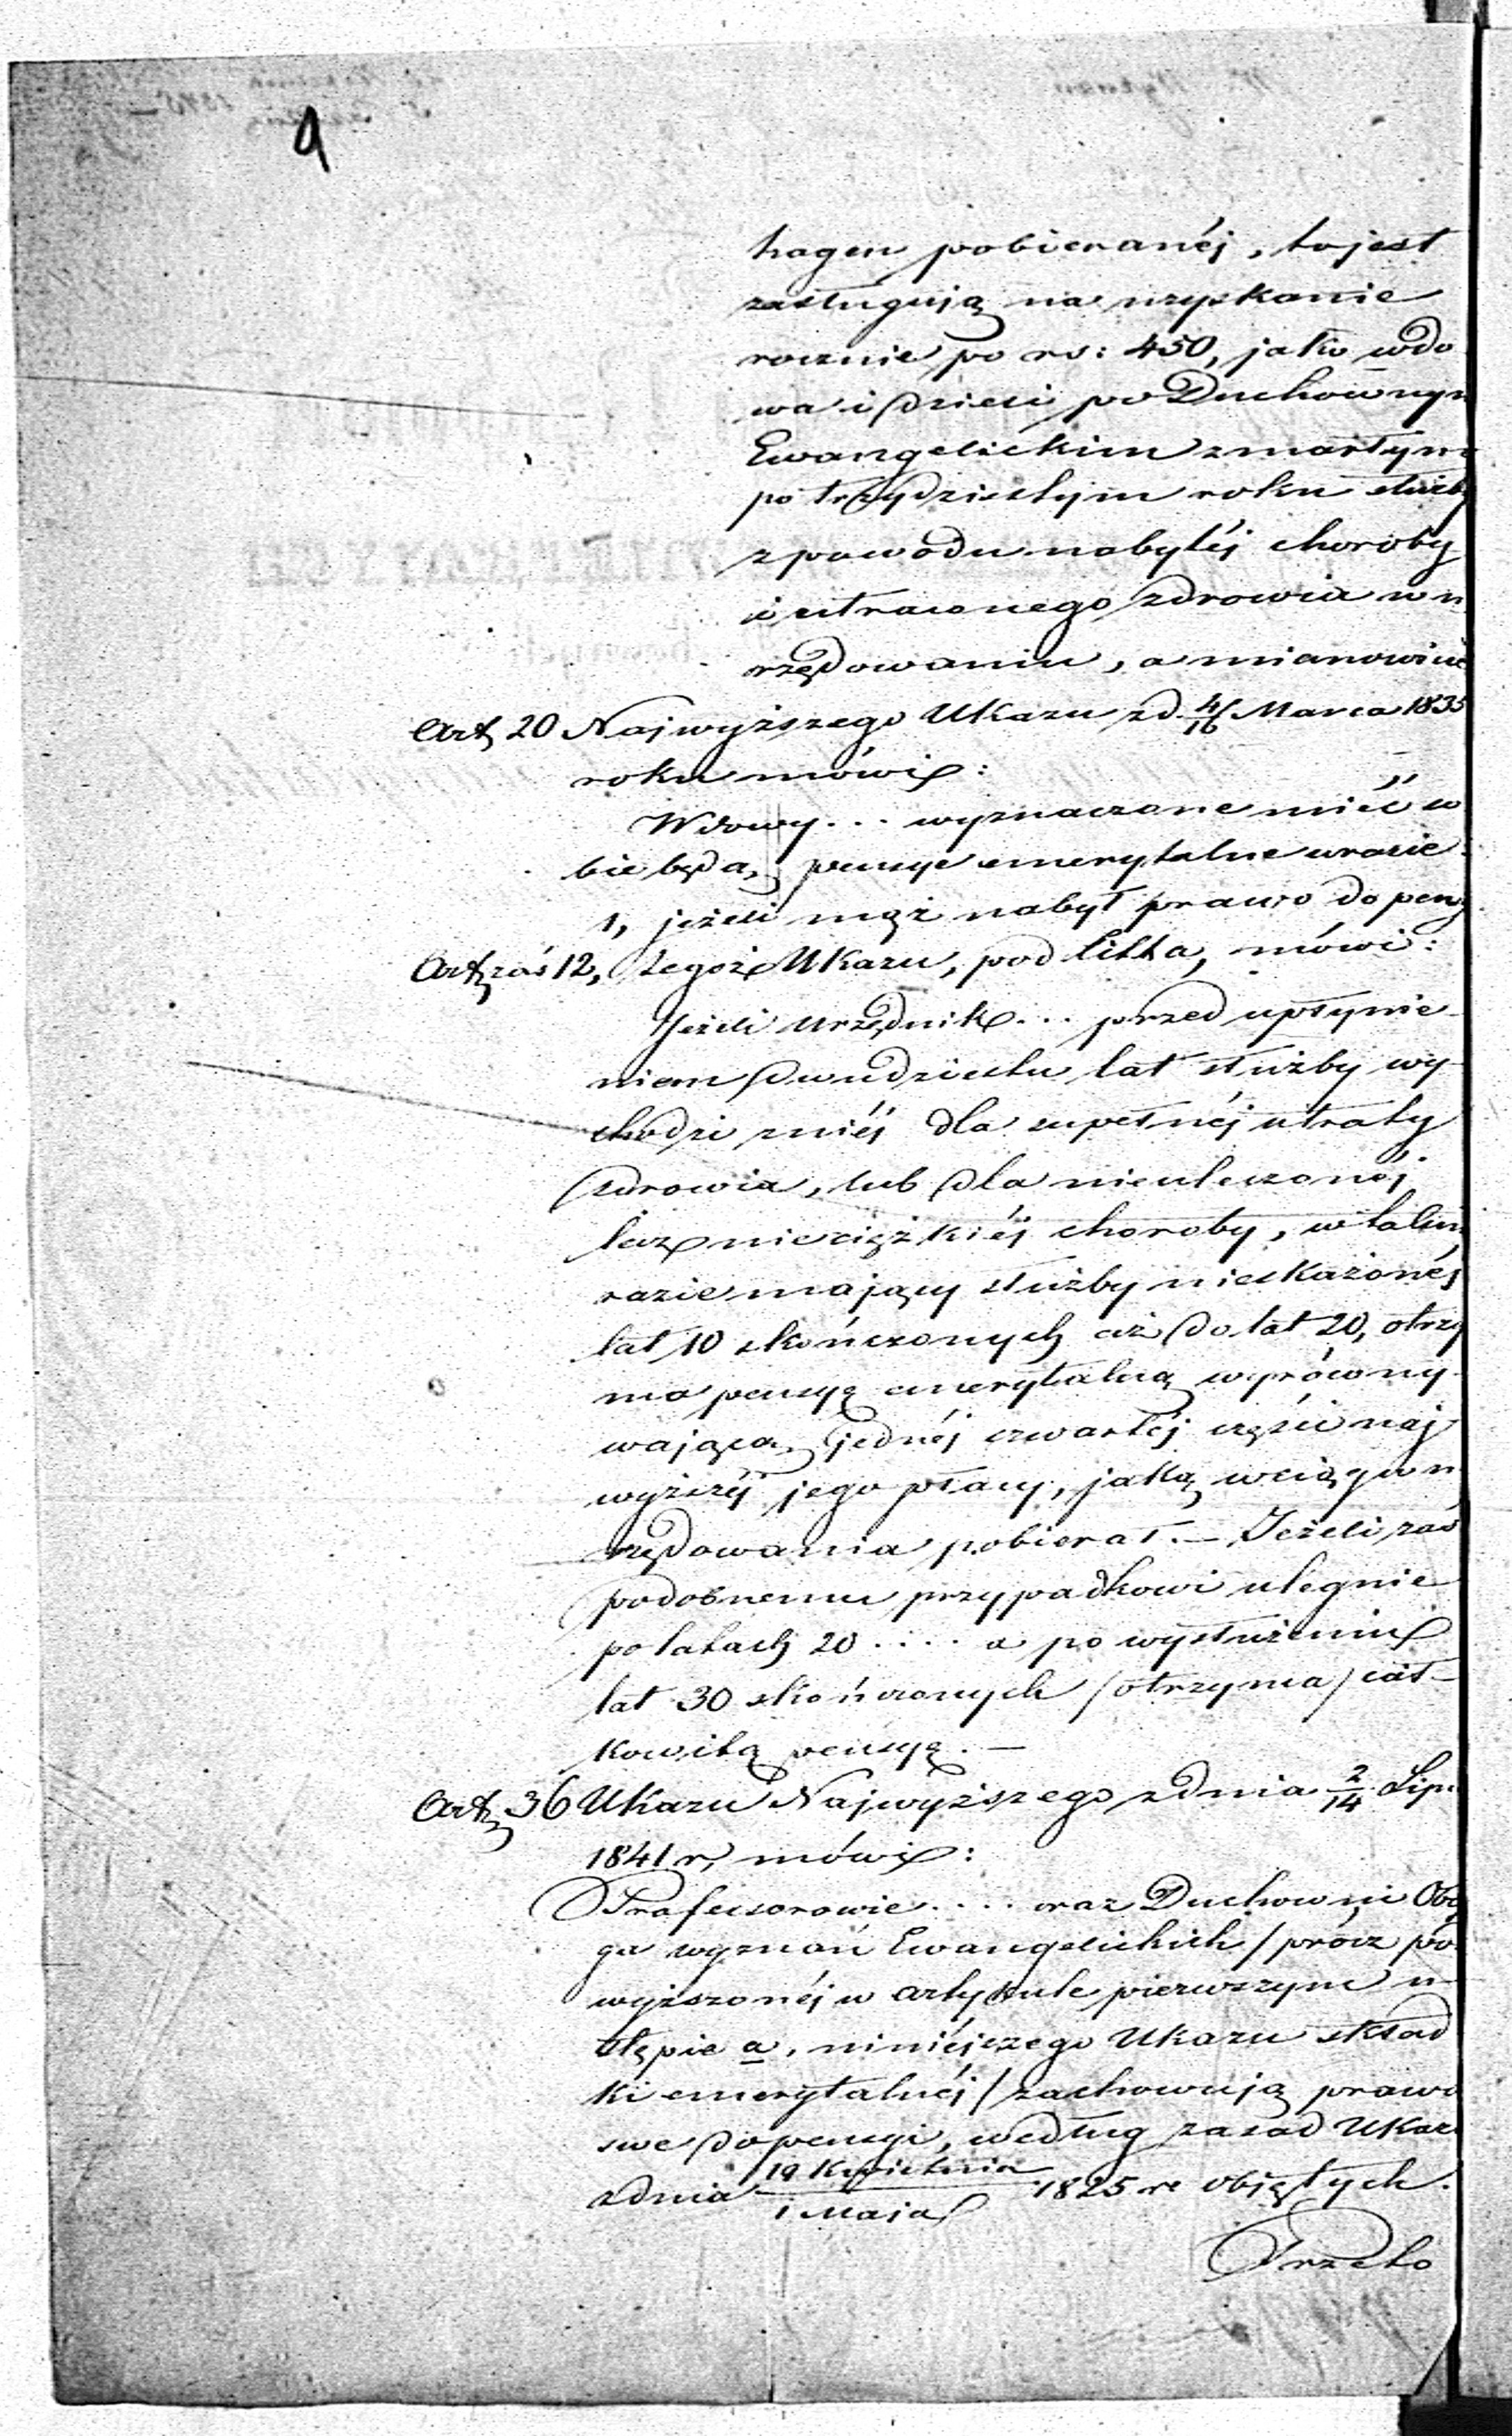 9
hagen pobieranéj, to jest
zasługują na uzyskanie
rocznie po rs: 450, jako wdo
wa i dzieci po Duchownym
Ewangelickim zmarłym
po trzydziestym roku służby
z powodu nabytéj choroby
i utraconego zdrowia w u
rzędowaniu, a mianowicie
Art 20 Najwyższego Ukazu z d. 4/16 Marca 1835
roku mówi:
Wdowy... wyznaczone mieć so
bie będą, pensye emerytalne w razie
1, jeżeli mąż nabył prawo do pensy
Art zaś 12, tegoż Ukazu, pod litta, mówi:
Jeżeli urzędnik... przed upłynie
niem dwudziestu lat służby wy
chodzi z niéj dla zupełnéj utraty
zdrowia, lub dla nieuleczonéj
lecz nie ciężkiéj choroby, w takim
razie mający służby nieskażonéj
lat 10 skończonych aż do lat 20, otrzy
ma pensyę emerytalną wyrówny
wającą jednéj czwartéj części naj
wyższéj jego płacy, jaką w ciągu u
rzędowania pobierał. — Jeżeli zaś
podobnemu przypadkowi ulegnie
po latach 20 .... a po wysłużeniu
lat 30 skończonych /otrzyma/ cał-
kowitą pensyę. —
Art 36 Ukazu Najwyższego z dnia 2/14 Lipc
1841 r, mówi:
Professorowie .... oraz Duchowni Oboj
ga wyznań Ewangelickich /prócz po
wyższonéj w artykule pierwszym u
stępie a, niniéjszego Ukazu skład
ki emerytalnéj/ zachowują prawo
swe do pensyi, według zasad Ukazu
z dnia 19 Kwietnia / 1 Maja 1825 r objętych.
Trzeto